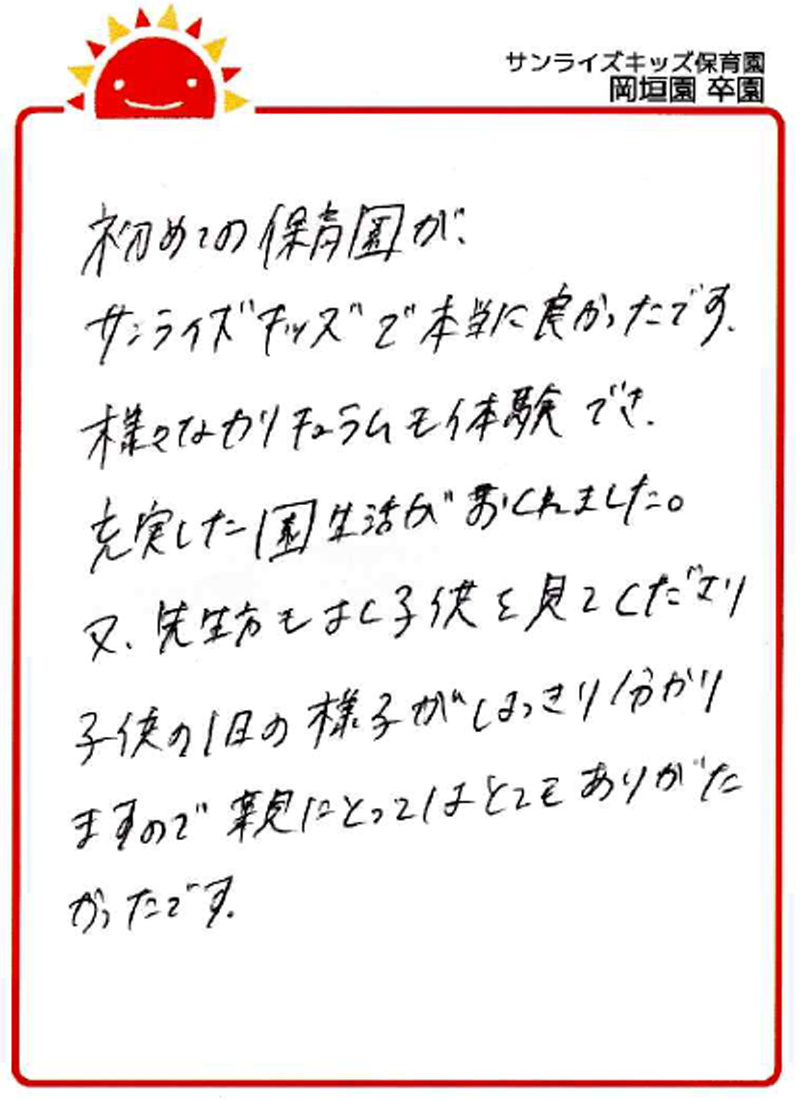 サンライズキッズ保育園
岡垣園 卒園
初めての保育園が、
サンライズキッズで本当に良かったです。
様々なカリキュラムも体験でき、
充実した園生活がおくれました。
又、先生方もよく子供を見てくださり
子供の1日の様子がはっきり分かり
ますので親にとってはとてもありがた
かったです。